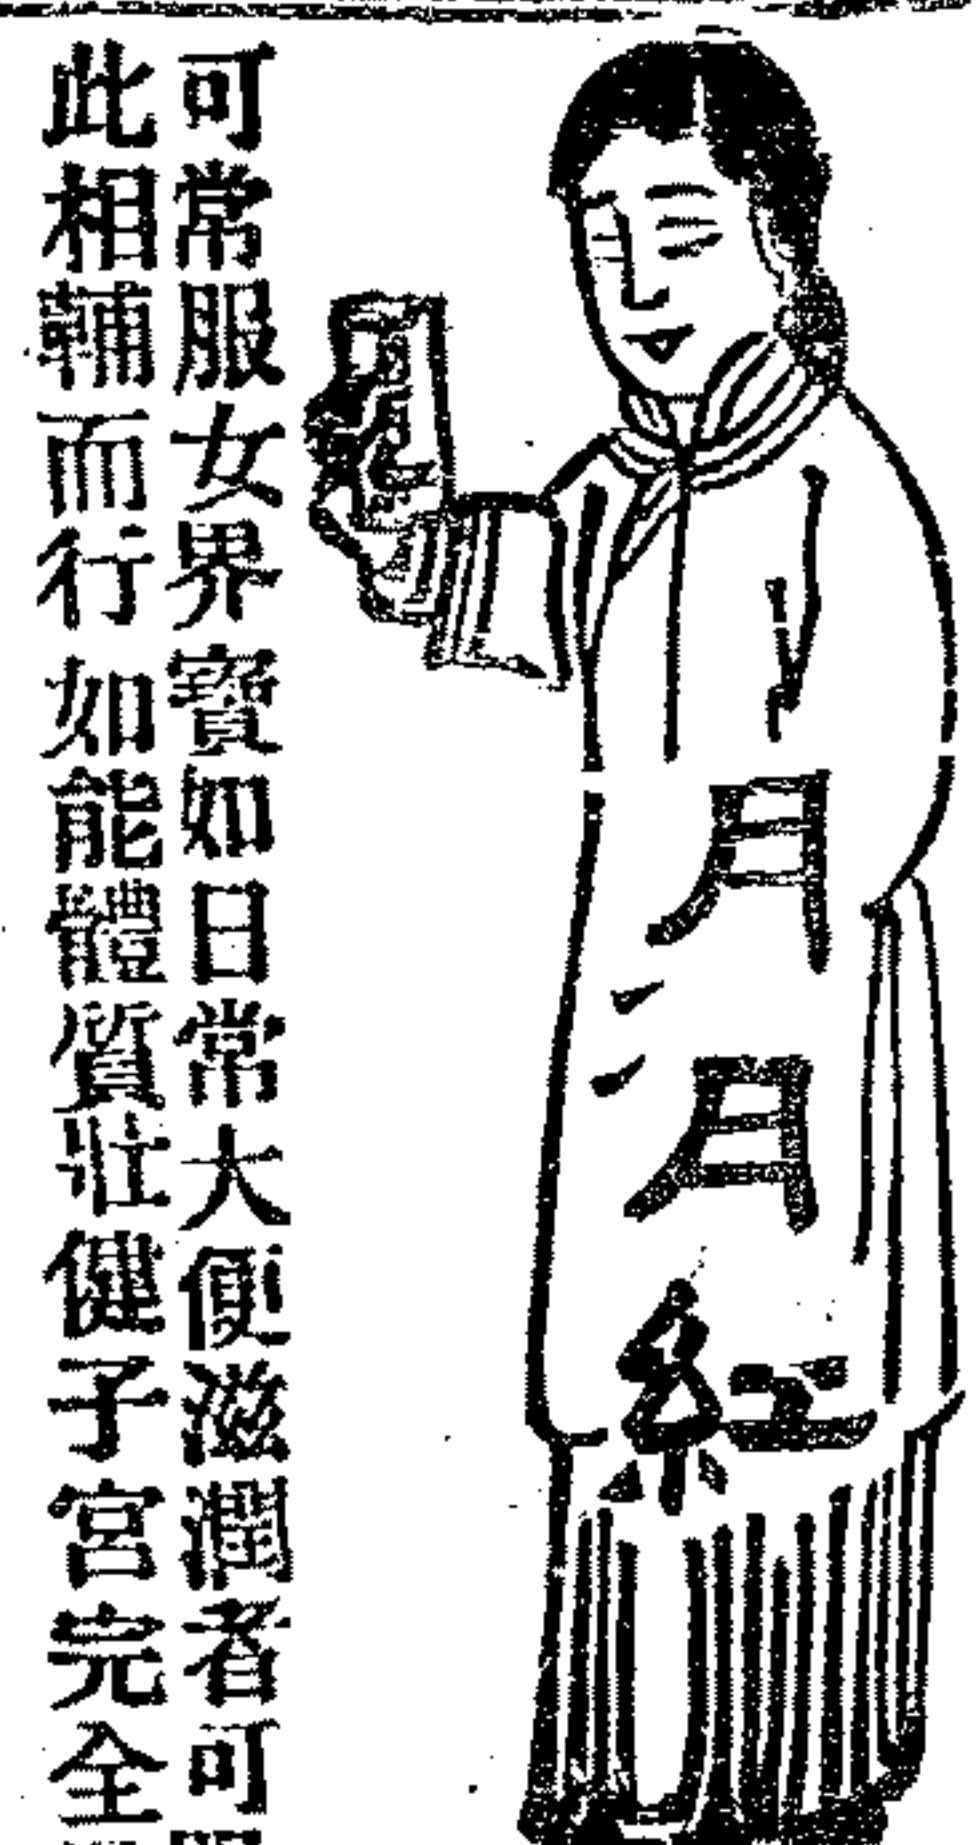 月月紅
可常服女界寶如日常大便滋潤者可服
此相輔而行如能體質壯健子宮完全